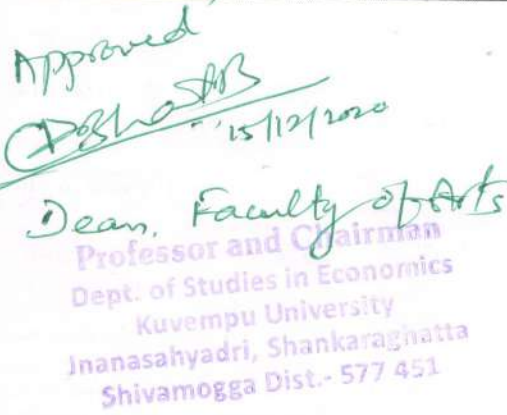 Approved
15/12/2020
Dean, Faculty of Arts
Professor and Chairman
Dept. of Studies in Economics
Kuvempu University
Jnanasahyadri, Shankaraghatta
Shivamogga Dist.- 577 451